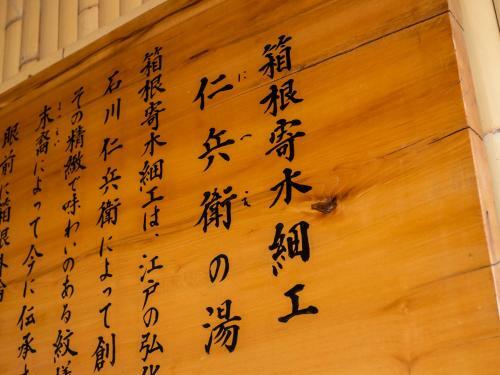 箱根寄木細工
仁兵衛の湯
にへえ
箱根寄木細工は、江戸の弘化
石川仁兵衛によって創
その精緻で味わいのある紋様
末裔によって今に伝承
眼前に箱根外輪